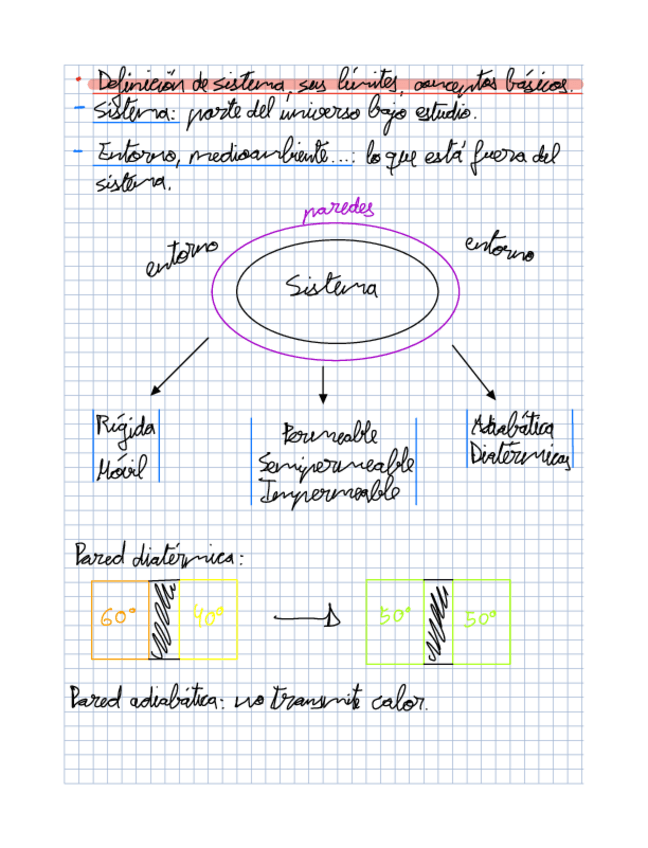 • Definición de sistema, sus límites, conceptos básicos.
- Sistema: parte del universo bajo estudio.
- Entorno, medioambiente...: lo que está fuera del
sistema.
paredes
entorno
entorno
Sistema
Rígida
Móvil
Permeable
Semipermeable
Impermeable
Adiabática
Diatérmicas
Pared diatérmica:
60°
40°
50°
50°
Pared adiabática: no transmite calor.